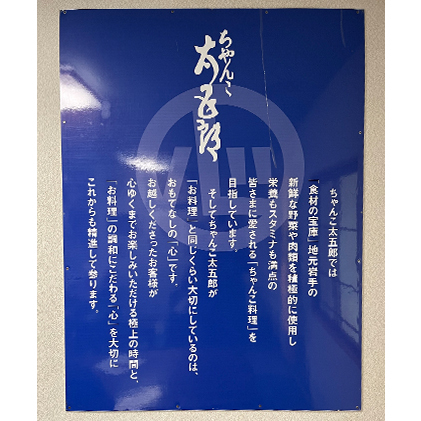 ちゃんこ
太五郎
ちゃんこ太五郎では
「食材の宝庫」地元岩手の
新鮮な野菜や肉類を積極的に使用し
栄養もスタミナも満点の
皆さまに愛される「ちゃんこ料理」を
目指しています。
そしてちゃんこ太五郎が
「お料理」と同じくらい大切にしているのは、
おもてなしの「心」です。
お越しくださったお客様が
心ゆくまでお楽しみいただける極上の時間と、
「お料理」の調和にこだわる「心」を大切に
これからも精進して参ります。